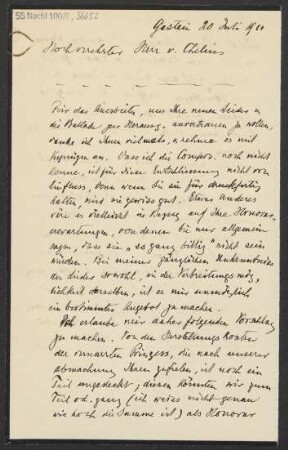 55 Nachl 100/A, 36652
Gastein 20 Juli 1910
Hochverehrter Herr v. Chelius
Für das Anerbieten, uns Ihre neuen Lieder u
die Ballade zur Herausg. anvertrauen zu wollen,
danke ich Ihnen vielmals, u nehme es mit
Vergnügen an. Dass ich die Compos. noch nicht
kenne, ist für diese Entschliessung nicht von
Einfluss, denn wenn Sie sie für druckfertig
halten, sind sie gewiss gut. Etwas Anderes
wäre es vielleicht in Bezug auf Ihre Honorar-
erwartungen, von denen Sie nur allgemein
sagen, dass sie „so ganz billig" nicht sein
würden. Bei meiner gänzlichen Unkenntniss
der Lieder sowohl, wie der Verbreitungsmög-
lichkeit derselben, ist es mir unmöglich,
ein bestimmtes Angebot zu machen.
Ich erlaube mir daher folgenden Vorschlag
zu machen. Von den Herstellungs Kosten
der vernarrten Prinzess, die nach unserer
Abmachung Ihnen zufielen, ist noch ein
Teil ungedeckt; diesen könnten wir zum
Teil od. ganz (ich weiss nicht genau
wie hoch die Summe ist) als Honorar